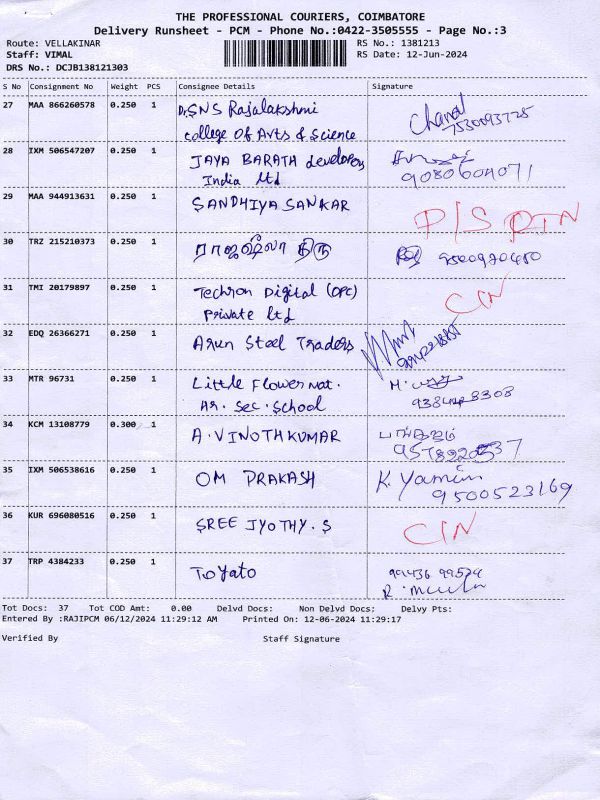 THE PROFESSIONAL COURIERS, COIMBATORE
Delivery Runsheet - PCM - Phone No.:0422-3505555 - Page No.:3
Route: VELLAKINAR
RS No.: 1381213
Staff: VIMAL
RS Date: 12-Jun-2024
DRS No.: DCJB138121303
S No Consignment No Weight PCS Consignee Details Signature
27 MAA 866260578 0.250 1 Dr.SNS Rajalakshmi
College Of Arts & Science
28 IXM 506547207 0.250 1 JAYA BARATH developers
India ltd
9080604071
29 MAA 944913631 0.250 1 SANDHIYA SANKAR
P/S RTN
30 TRZ 215210373 0.250 1 ராஜஷீலா திரு
31 TMI 20179897 0.250 1 Techion Digital (OPC)
Private ltd
CIN
32 EDQ 26366271 0.250 1 Arun Steel Traders
33 MTR 96731 0.250 1 Little Flower Mat.
Hr. Sec. School
34 KCM 13108779 0.300 1 A. VINOTHKUMAR
35 IXM 506538616 0.250 1 OM PRAKASH K. Yamini
9500523169
36 KUR 696080516 0.250 1 SREE JYOTHY. S CIN
37 TRP 4384233 0.250 1 Toyato
Tot Docs: 37 Tot COD Amt: 0.00 Delvd Docs: Non Delvd Docs: Delvy Pts:
Entered By :RAJIPCM 06/12/2024 11:29:12 AM Printed On: 12-06-2024 11:29:17
Verified By Staff Signature